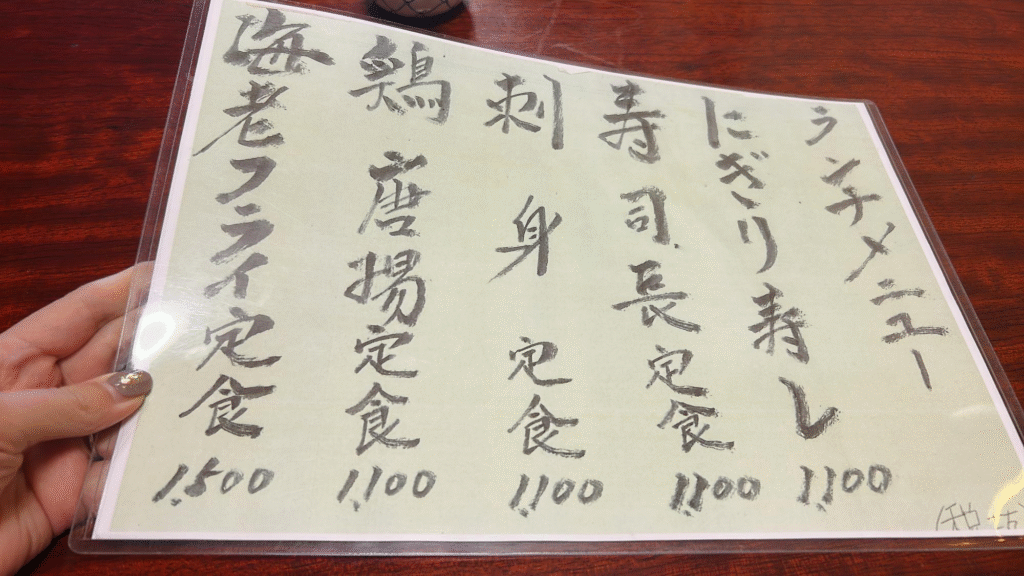 ランチメニュー
にぎり寿し 1,100
寿司長定食 1,100
刺身定食 1,100
鶏唐揚定食 1,100
海老フライ定食 1,500